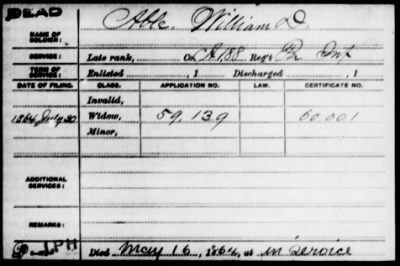 DEAD
NAME OF SOLDIER: Able, William D.
SERVICE: Late rank, Co. A, 188 Reg't Pa Inf
TERM OF SERVICE: Enlisted , 1 Discharged , 1
DATE OF FILING. CLASS. APPLICATION NO. LAW. CERTIFICATE NO.
Invalid,
1864 July 30 Widow, 59.139 60001
Minor,
ADDITIONAL SERVICES:
REMARKS:
Died May 16, 1864, at in service